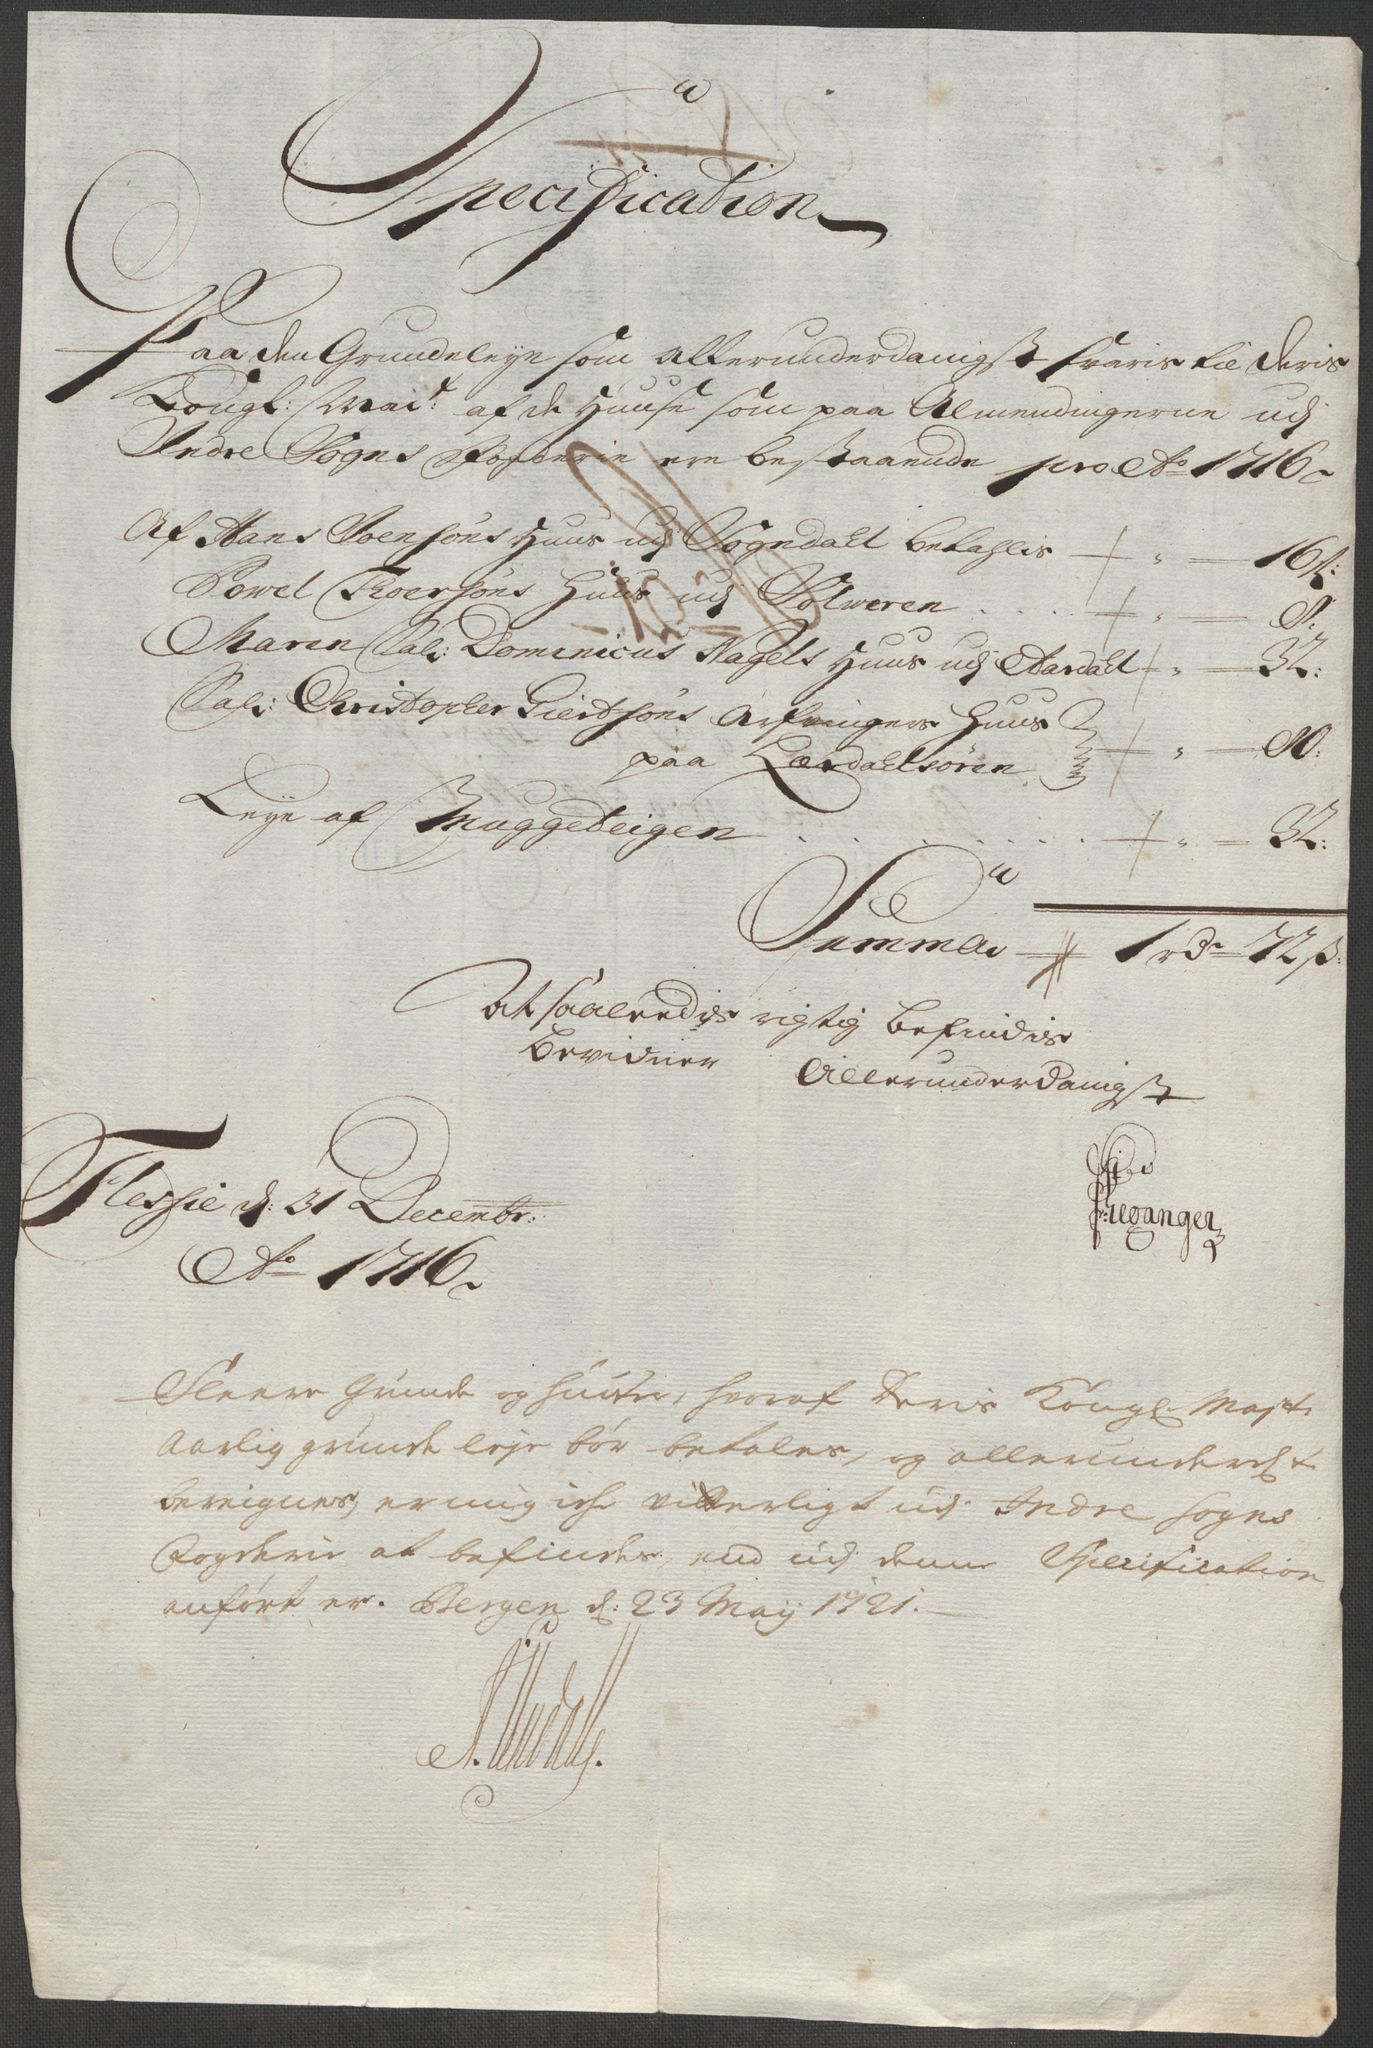 Specification
Paa den Grundeleye som allerunderdanigst svaris til Deris
Kongl: Mai: af de Huuse som paa Almendingerne udj
Indre Sogns Fogderie ere bestaaende pro Ao 1716
Af Hans Joensøns Huus udj Sogndahl betahlis " 16 ß:
Powel Iversøns Huus udj Solworen " 8:
Maren Sal: Dominicus Nagels Huus udj Aardahl " 32:
Sal: Christopher Giertsøns Arfvingers Huus
paa Lærdahlsøren " 80:
Leye af Muggeteigen " 32:
Summa 1 rdr 72 ß:
At saaleedis rigtig befindis
bevidner Allerunderdanigst
Flessie d: 31 Decembr:
Ao 1716
Fleere Grunde og Huuse, hvoraf Deris Kongl Majt:
Aarlig grunde leje bør betales, og allerunderd:t
bereignes, er mig iche vitterligt udj Indre Sogns
Fogderie at befindes, end udj denne Specification
anført er. Bergen d: 23 May 1721.